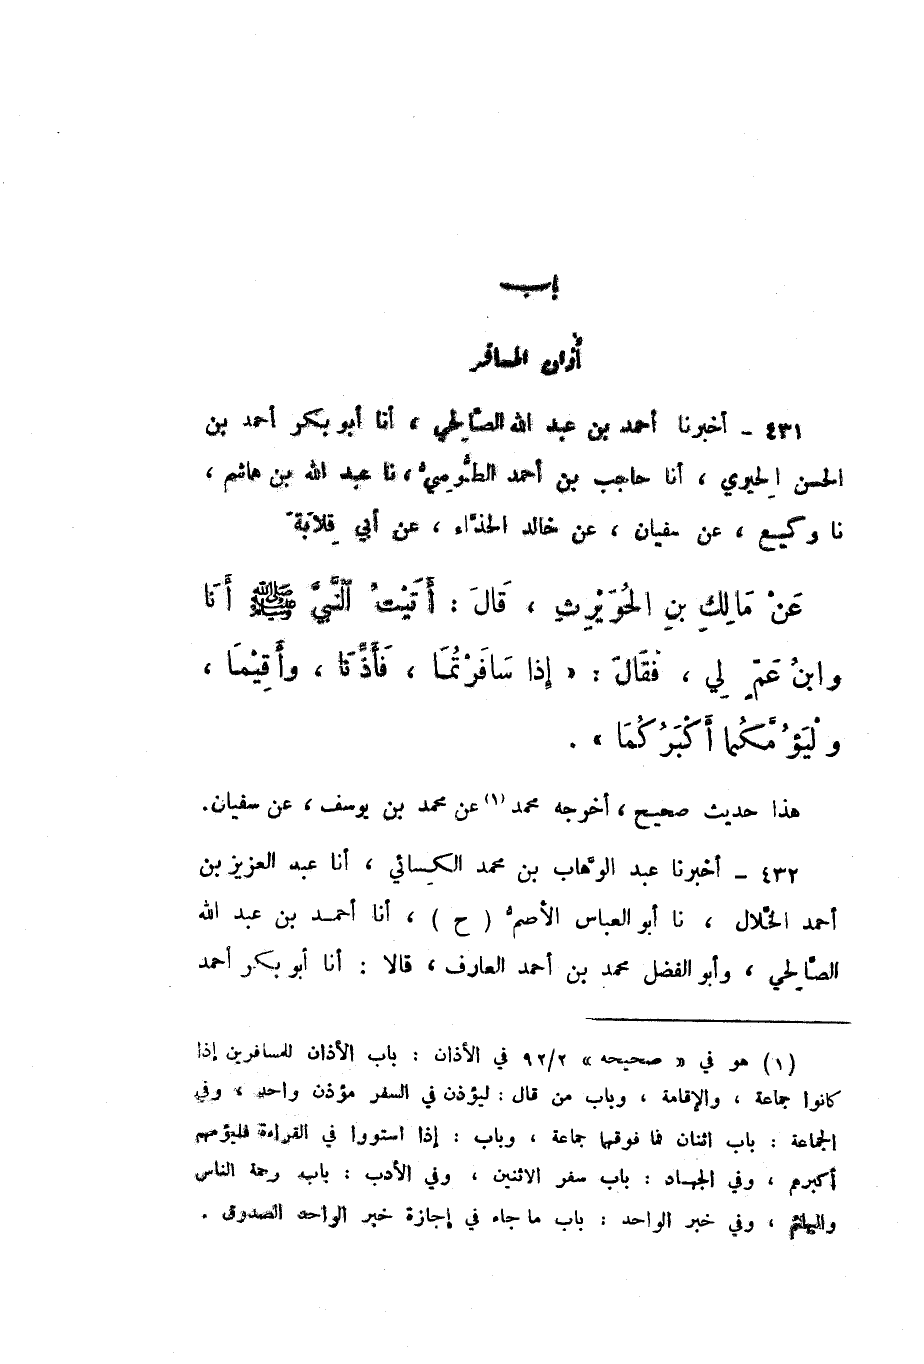 باب
أذان المسافر
٤٣١ - أخبرنا أحمد بن عبد الله الصّالحي ، أنا أبو بكر أحمد بن
الحسن الحيري ، أنا حاجب بن أحمد الطُّوسيُّ ، نا عبد الله بن هاشم ،
نا وكيع ، عن سفيان ، عن خالد الحذَّاء ، عن أبي قِلابَةَ
عَنْ مَالِكِ بنِ الحُوَيْرِثِ ، قَالَ : أَتَيْتُ النَّبيَّ ﷺ أَنَا
وابنُ عَمٍّ لِي ، فَقَالَ : « إذا سَافَرْتُمَا ، فَأَذِّنَا ، وأَقِيْمَا ،
وَلْيَؤُمَّكُما أَكْبَرُكُمَا » .
هذا حديث صحيح ، أخرجه محمد (١) عن محمد بن يوسف ، عن سفيان .
٤٣٢ - أخبرنا عبد الوهَّاب بن محمد الكِسائي ، أنا عبد العزيز بن
أحمد الخلَّال ، نا أبو العباس الأصمُّ ( ح ) ، أنا أحمد بن عبد الله
الصّالحي ، وأبو الفضل محمد بن أحمد العارف ، قالا : أنا أبو بكر أحمد
(١) هو في « صحيحه » ٩٢/٢ في الأذان : باب الأذان للمسافرين إذا
كانوا جماعة ، والإقامة ، وباب من قال : ليؤذن في السفر مؤذن واحد ، وفي
الجماعة : باب اثنان فما فوقهما جماعة ، وباب : إذا استووا في القراءة فليؤمهم
أكبرهم ، وفي الجهاد : باب سفر الاثنين ، وفي الأدب : باب رحمة الناس
والبهائم ، وفي خبر الواحد : باب ما جاء في إجازة خبر الواحد الصدوق .